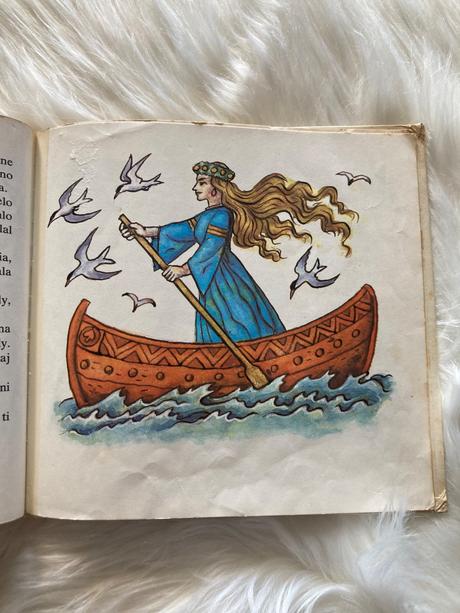 ne
no
a.
elo
alo
dal
ia,
ala
dy,
na
dy.
aj
ni
ti